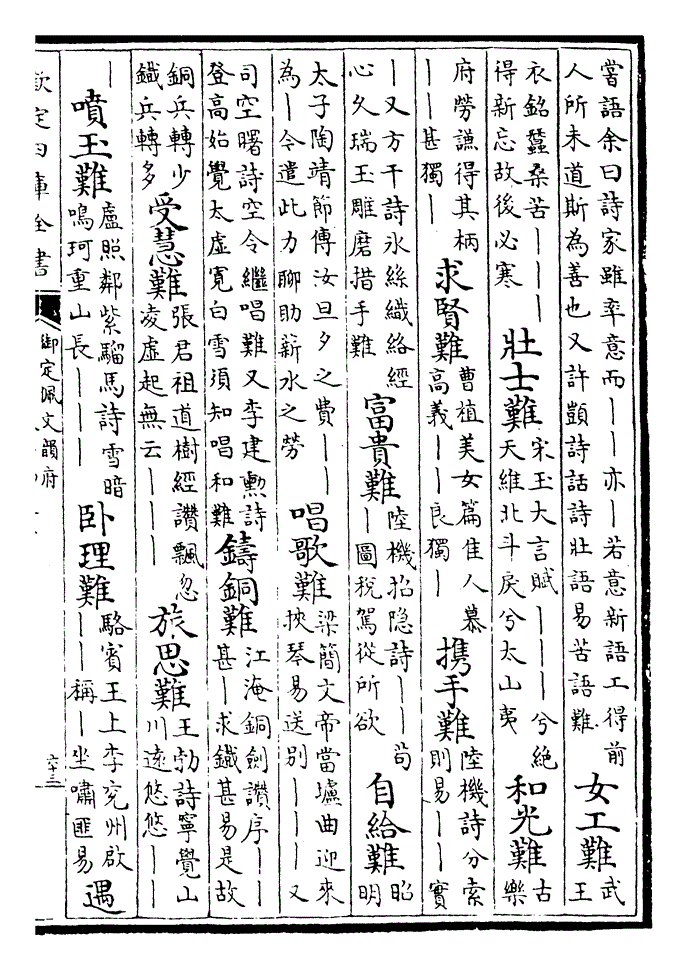 嘗語余曰詩家雖率意而｜｜亦｜若意新語工得前
人所未道斯為善也又許顗詩話詩壯語易苦語難
女工難
武
王
衣銘蠶桑苦｜｜｜
得新忘故後必寒
壯士難
宋玉大言賦｜｜｜兮絶
天維北斗戾兮太山夷
和光難
古
樂
府勞謙得其柄
｜｜甚獨｜
求賢難
曹植美女篇佳人慕
高義｜｜良獨｜
携手難
陸機詩分索
則易｜｜實
｜又方干詩氷絲織絡經
心久瑞玉雕磨措手難
富貴難
陸機招隱詩｜｜苟
｜圖稅駕從所欲
自給難
昭
明
太子陶靖節傳汝旦夕之費｜｜
為｜今遣此力聊助薪水之勞
唱歌難
梁簡文帝當壚曲迎來
挾琴易送別｜｜｜又
司空曙詩空令繼唱難又李建勲詩
登高始覺太虚寛白雪須知唱和難
鑄銅難
江淹銅劍讚序｜｜
甚｜求鐵甚易是故
銅兵轉少
鐵兵轉多
受慧難
張君祖道樹經讚飄忽
凌虚起無云｜｜｜
旅思難
王勃詩寧覺山
川遠悠悠｜｜｜
｜
噴玉難
盧照鄰紫騮馬詩雪暗
鳴珂重山長｜｜｜
卧理難
駱賓王上李兖州啟
｜｜稱｜坐嘯匪易
遇
欽定四庫全書
御定佩文韻府
六十三